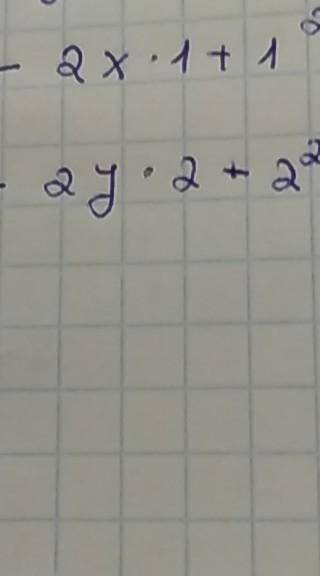 - 2x · 1 + 1²
- 2y · 2 + 2²